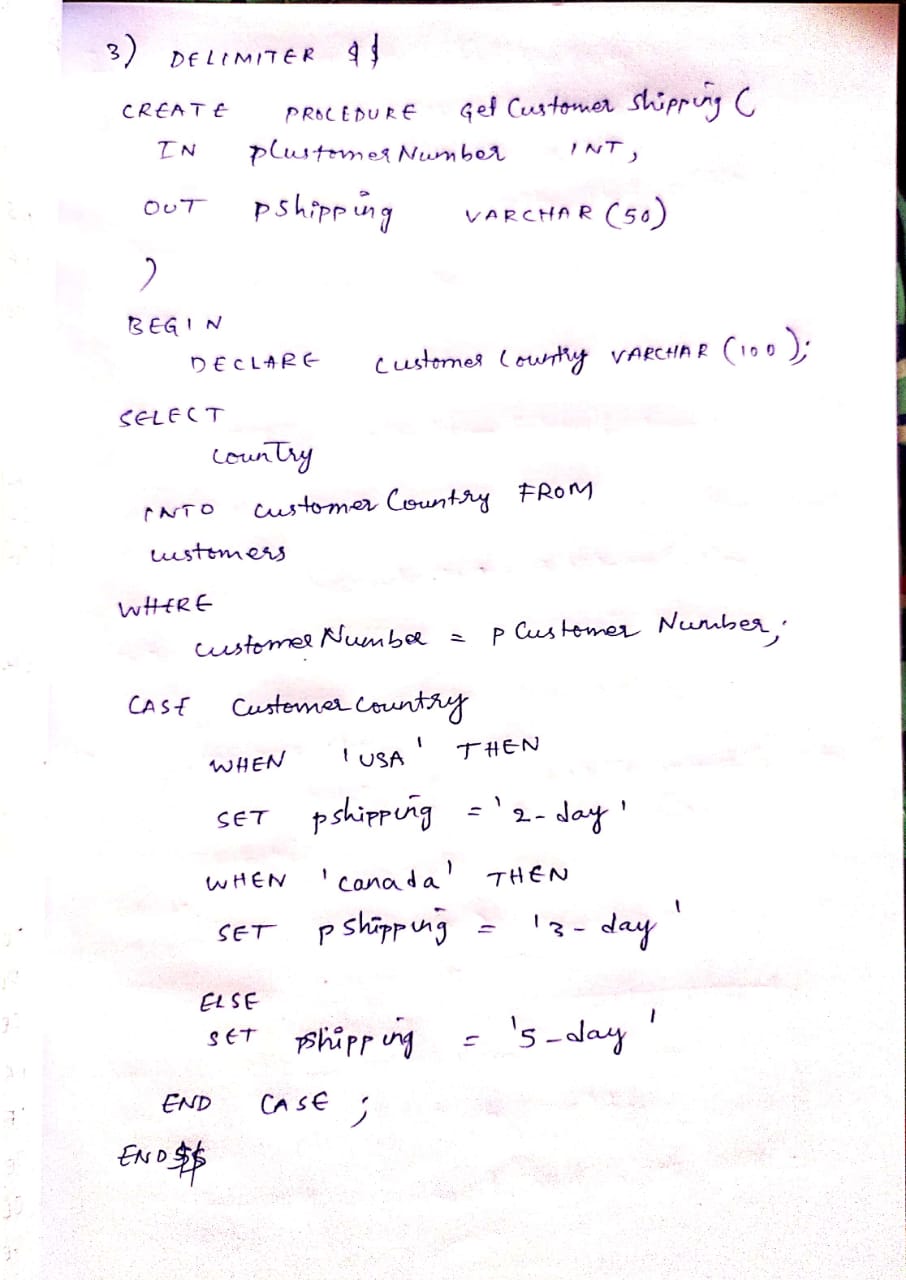 3) DELIMITER $$
CREATE PROCEDURE Get Customer Shipping (
IN pCustomer Number INT,
OUT pshipping VARCHAR (50)
)
BEGIN
DECLARE Customer Country VARCHAR (100);
SELECT
country
INTO Customer Country FROM
customers
WHERE
Customer Number = p Customer Number;
CASE Customer Country
WHEN 'USA' THEN
SET pshipping = '2-day'
WHEN 'canada' THEN
SET pshipping = '3-day'
ELSE
SET pshipping = '5-day'
END CASE ;
END $$